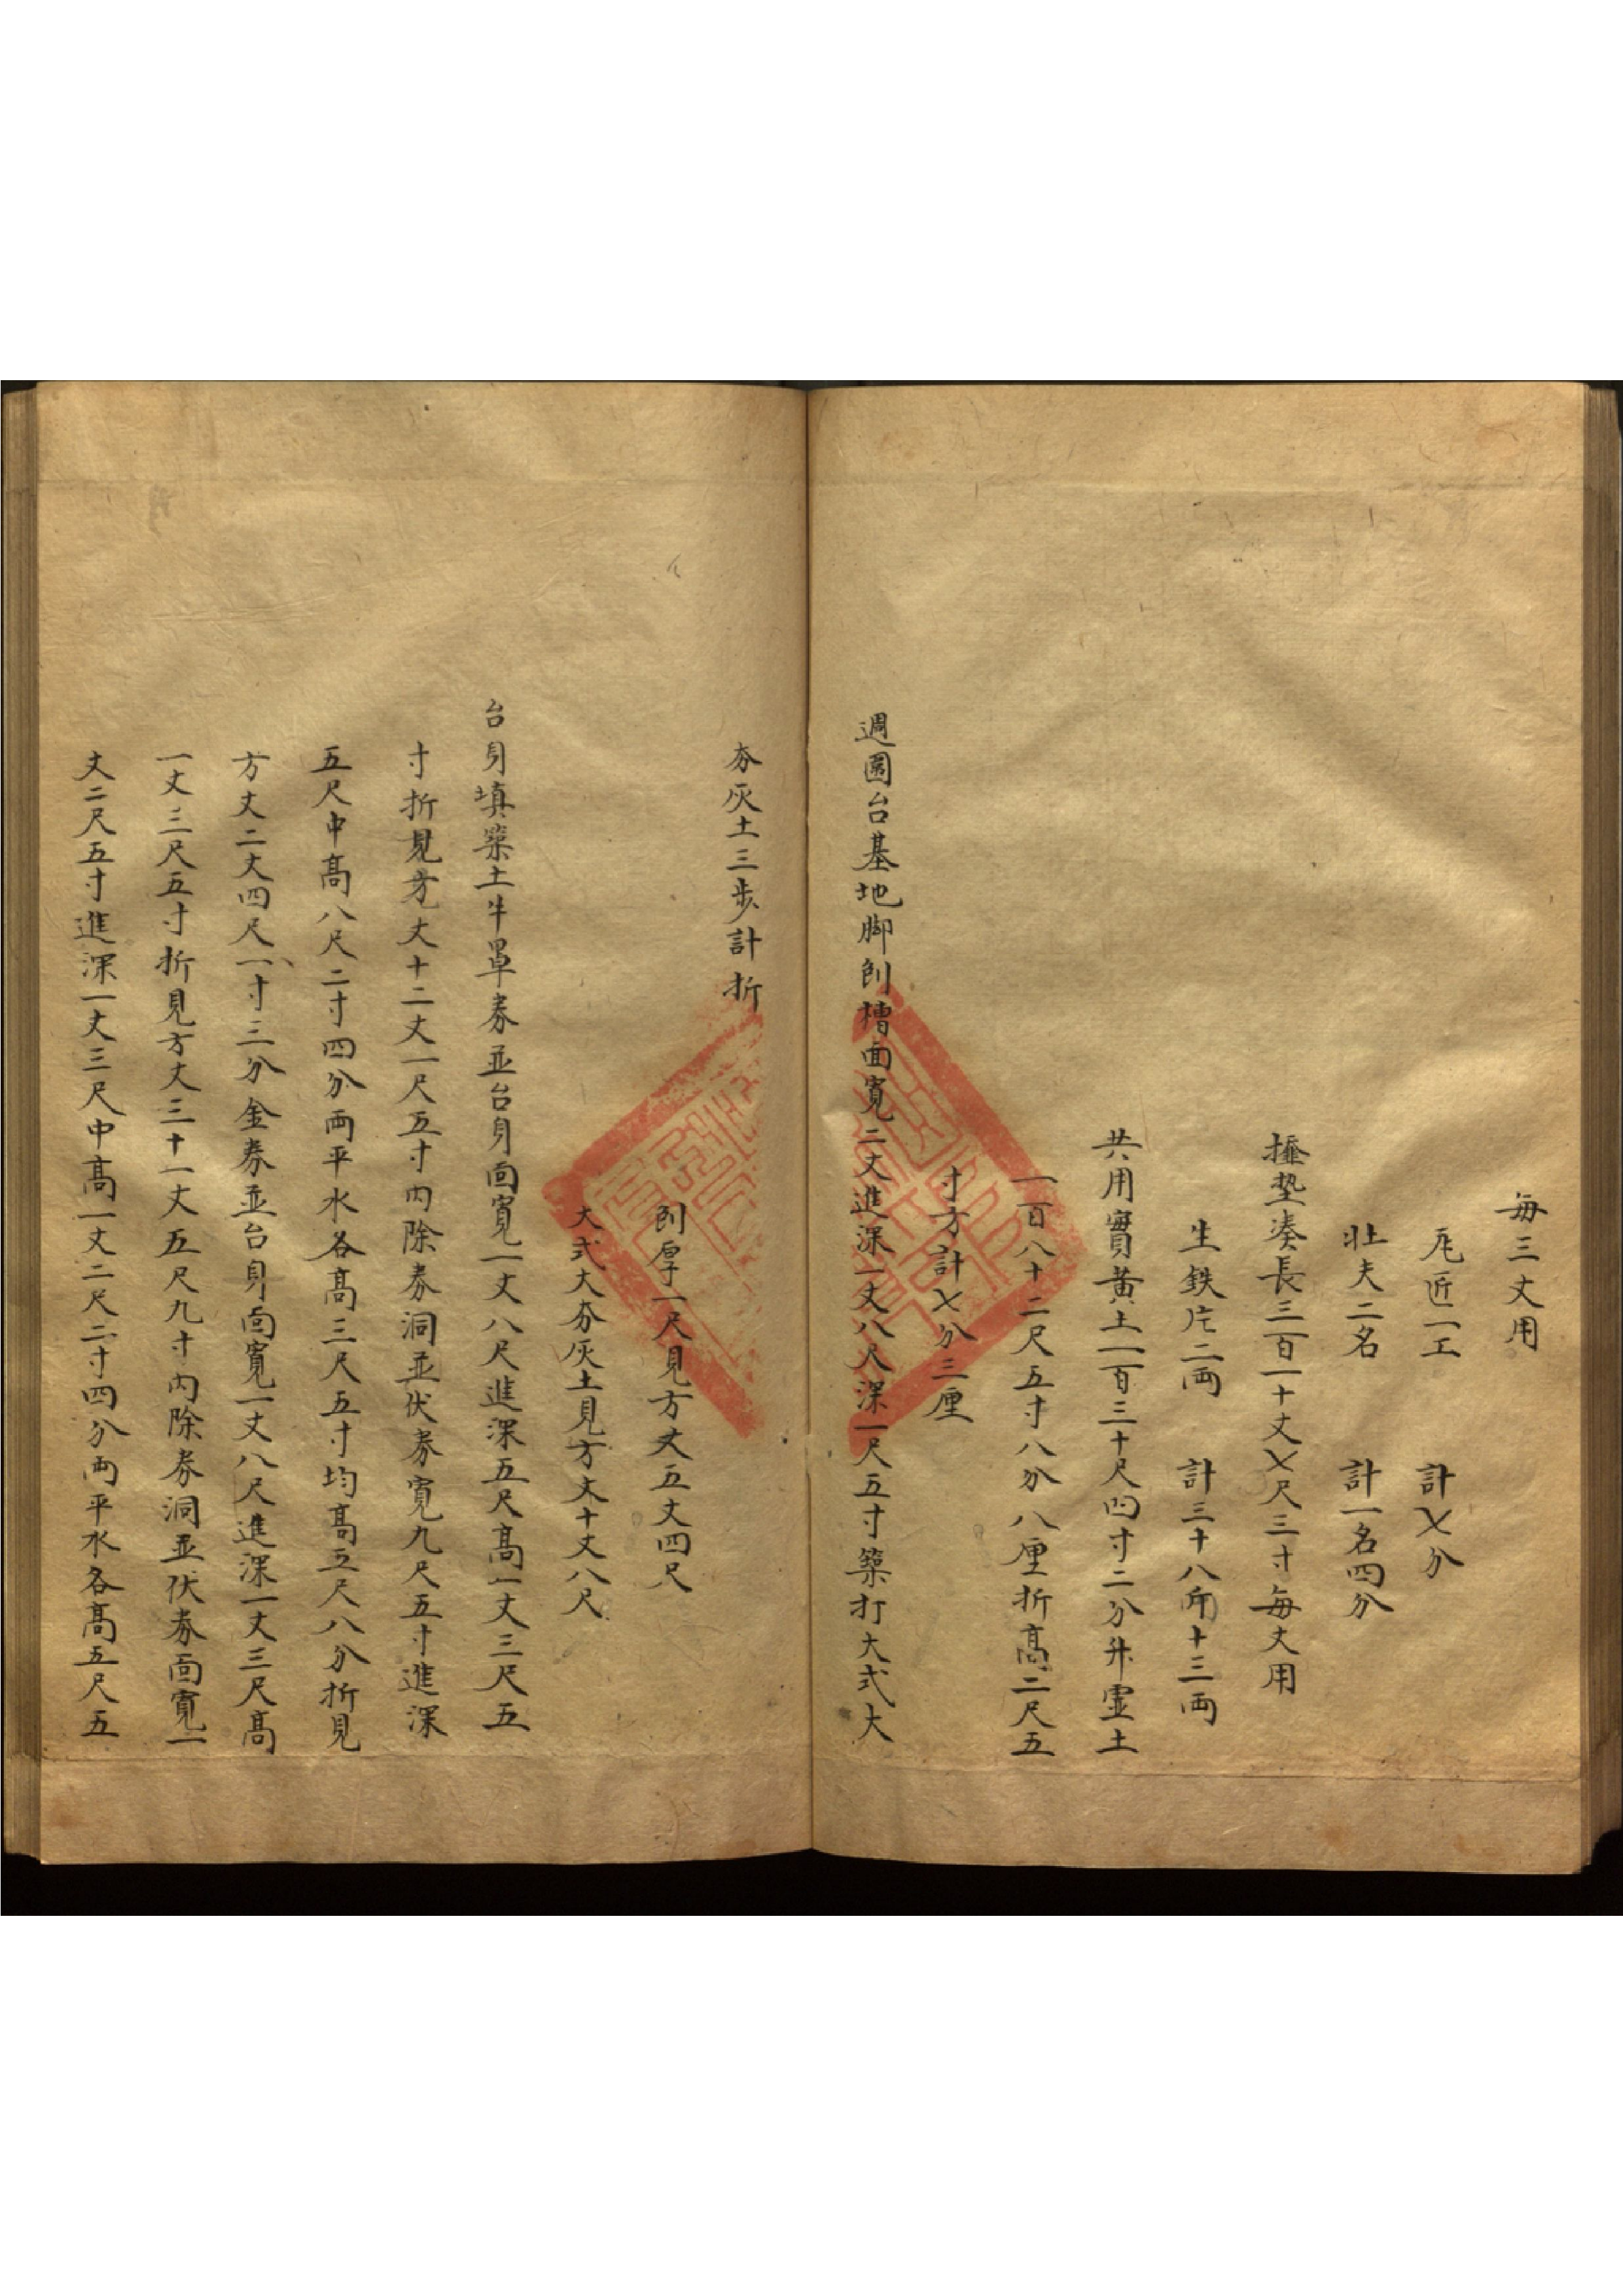 每三丈用
瓦匠一工 計七分
壯夫二名 計一名四分
揰墊湊長三百一十丈七尺三寸每丈用
生鉄片二両 計三十八觔十三両
共用實黃土一百三十尺四寸二分井虛土
一百八十二尺五寸八分八厘折高二尺五
寸方計七分三厘
週圍台基地脚刨槽面寬二丈進深一丈八尺深一尺五寸築打大式大
夯灰土三步計折
刨厚一尺見方丈五丈四尺
大式大夯灰土見方丈十丈八尺
台身填築土牛單券並台身面寬一丈八尺進深五尺高一丈三尺五
寸折見方丈十二丈一尺五寸内除券洞並伏券寬九尺五寸進深
五尺中高八尺二寸四分両平水各高三尺五寸均高五尺八分折見
方丈二丈四尺一寸三分金券並台身面寬一丈八尺進深一丈三尺高
一丈三尺五寸折見方丈三十一丈五尺九寸内除券洞並伏券面寬一
丈二尺五寸進深一丈三尺中高一丈二尺二寸四分両平水各高五尺五